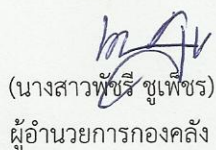 (นางสาวพัชรี ชูเพ็ชร)
ผู้อำนวยการกองคลัง